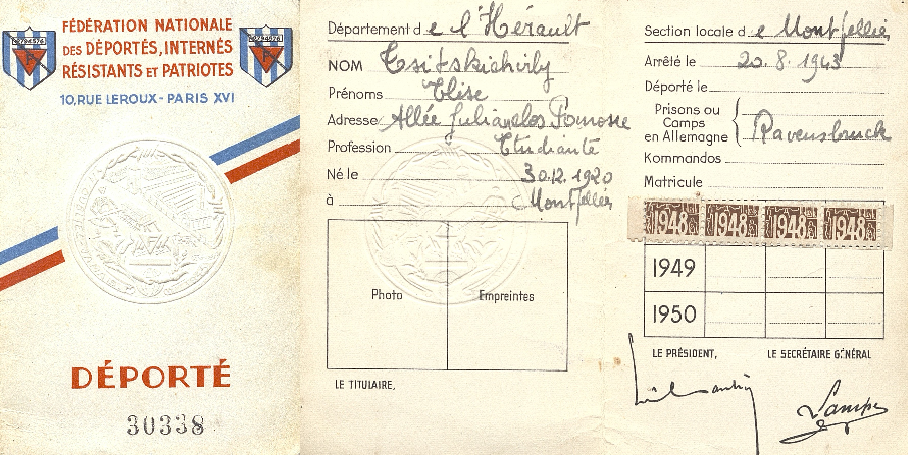 FÉDÉRATION NATIONALE
DES DÉPORTÉS, INTERNÉS
RÉSISTANTS ET PATRIOTES
10, RUE LEROUX - PARIS XVI
DÉPORTÉ
30338
Département de l'Hérault
NOM Tsitskichvily
Prénoms Elise
Adresse Allée Julian
Profession Etudiante
Né le 30.12.1920
à Montpellier
Photo
Empreintes
LE TITULAIRE,
Section locale de Montpellier
Arrêlé le 20.8.1943
Déporté le
Prisons ou
Camps
en Allemagne
Ravensbruck
Kommandos
Matricule
1948 1948 1948 1948
1949
1950
LE PRÉSIDENT,
LE SECRÉTAIRE GÉNÉRAL